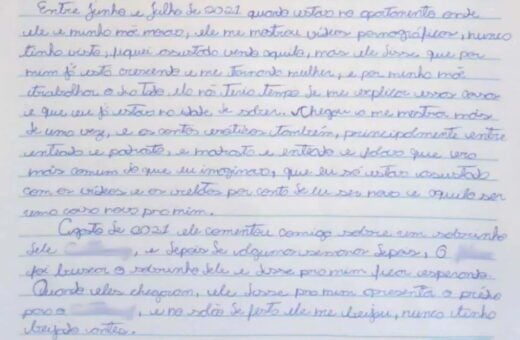 Entre Junho e Julho de 2021 quando estava no apartamento onde
ele e minha mãe mora, ele me mostrou vídeos pornográficos, nunca
tinha visto, fiquei assustada vendo aquilo, mas ele disse que por
mim já está crescendo e me tornando mulher, e por minha mãe
trabalhar o dia todo ela não teria tempo de me explicar essas coisas
e que eu já estava na idade de saber. Chegou a me mostrar mais
de uma vez, e os contos eróticos também, principalmente entre
enteada e padrasto, e madrasta e enteado e falava que era
mais comum do que eu imaginava, que eu só estava assustada
com os vídeos e os relatos por conta de eu ser nova e aquilo ser
uma coisa nova pra mim.
Agosto de 2021 ele comentou comigo sobre um sobrinho
dele , e depois de algumas semanas depois, O
foi buscar o sobrinho dele e disse pra mim ficar esperando.
Quando eles chegaram, ele disse pra mim apresenta o prédio
para o , e no salão de festa ele me beijou, nunca tinha
beijado antes.